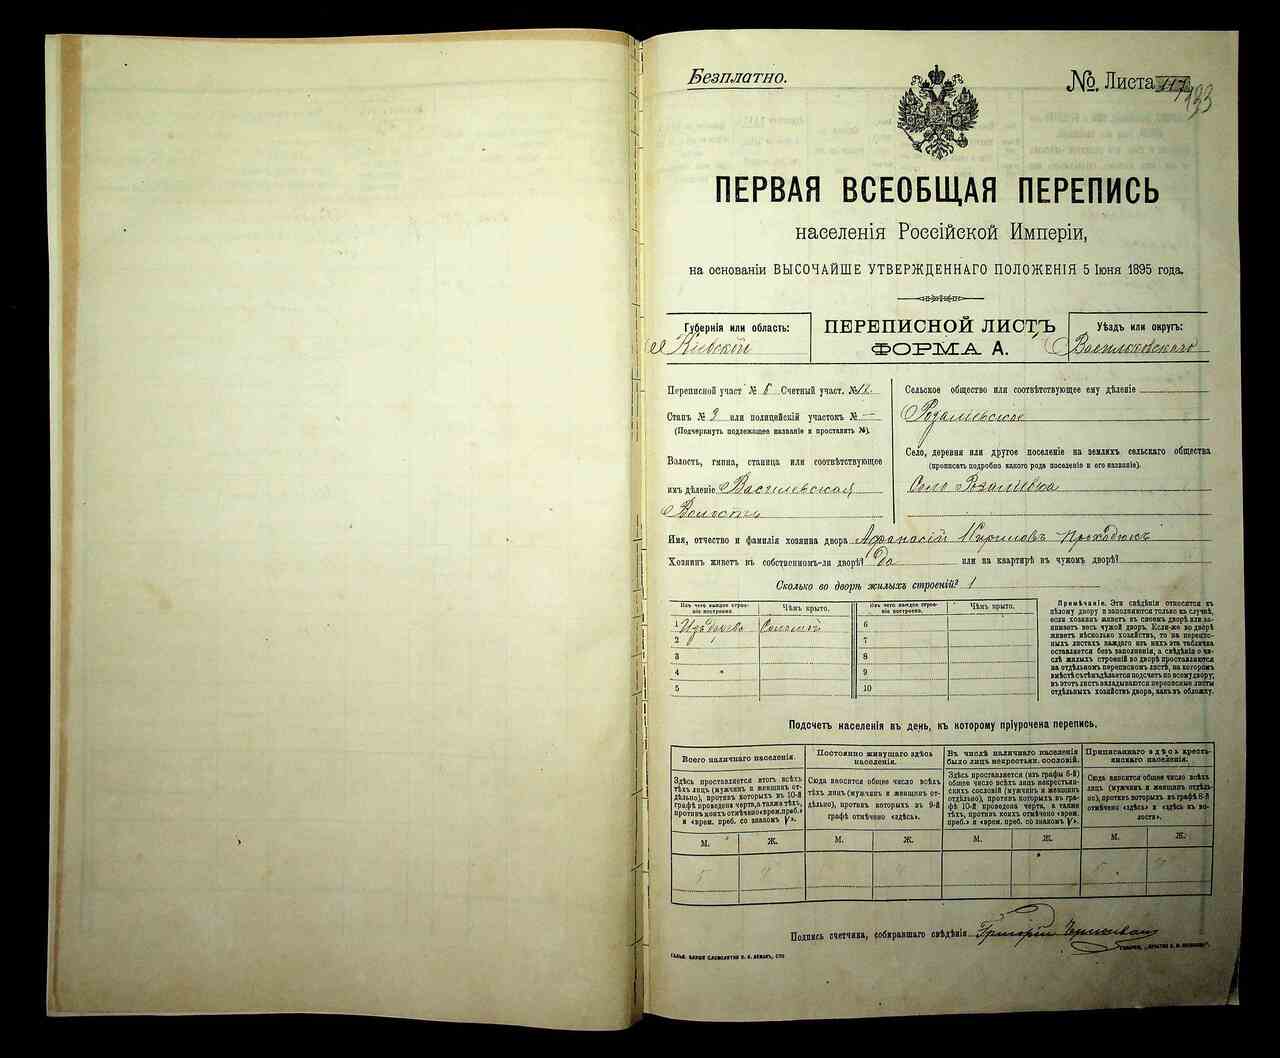 Безплатно.
№ Листа 133
ПЕРВАЯ ВСЕОБЩАЯ ПЕРЕПИСЬ
населенія Россійской Имперіи,
на основаніи ВЫСОЧАЙШЕ УТВЕРЖДЕННАГО ПОЛОЖЕНІЯ 5 Іюня 1895 года.
Губернія или область:
Кіевской
ПЕРЕПИСНОЙ ЛИСТЪ
ФОРМА А.
Уѣздъ или округъ:
Васильковскаго
Переписной участ № 6 Счетный участ. №12.
Станъ № 3 или полицейскій участокъ № —
(Подчеркнуть подлежащее названіе и проставить №).
Волость, гмина, станица или соотвѣтствующее
имъ дѣленіе Василевская
Волость
Сельское общество или соотвѣтствующее ему дѣленіе
Розалиевское
Село, деревня или другое поселеніе на земляхъ сельскаго общества
(прописать подробно какого рода поселеніе и его названіе).
Село Розалиевка
Имя, отчество и фамилія хозяина двора Афанасій Кириловъ
Хозяинъ живетъ въ собственномъ-ли дворѣ? Да или на квартирѣ въ чужомъ дворѣ?
Сколько во дворѣ жилыхъ строеній? 1
Изъ чего каждое строеніе построено.
Чѣмъ крыто.
Изъ чего каждое строеніе построено.
Чѣмъ крыто.
1 Изъ дерева Соломой 6
2 7
3 8
4 9
5 10
Примѣчаніе. Эта свѣдѣнія относятся къ
цѣлому двору и заполняются только въ случаѣ,
если хозяинъ живетъ въ своемъ дворѣ или за-
нимаетъ весь чужой дворъ. Если-же во дворѣ
живетъ нѣсколько хозяйствъ, то на перепис-
ныхъ листахъ каждаго изъ нихъ эта табличка
оставляется безъ заполненія, а свѣдѣнія о чи-
слѣ жилыхъ строеній во дворѣ проставляются
на отдѣльномъ переписномъ листѣ, на которомъ
вмѣстѣ съ тѣмъ дѣлается подсчетъ по всему двору;
въ этотъ листъ вкладываются переписные листы
отдѣльныхъ хозяйствъ двора, какъ въ обложку.
Подсчетъ населенія въ день, къ которому пріурочена перепись.
Всего наличнаго населенія.
Здѣсь проставляется итогъ всѣхъ
тѣхъ лицъ (мужчинъ и женщинъ от-
дѣльно), противъ которыхъ въ 10-й
графѣ проведена черта, а также тѣхъ,
противъ коихъ отмѣчено «врем. преб.»
и «врем. преб. со знакомъ V».
Постоянно живущаго здѣсь
населенія.
Сюда вносится общее число всѣхъ
тѣхъ лицъ (мужчинъ и женщинъ от-
дѣльно), противъ которыхъ въ 9-й
графѣ отмѣчено «здѣсь».
Въ числѣ наличнаго населенія
было лицъ некрестьян. сословій.
Здѣсь проставляется (изъ графы 6-й)
общее число всѣхъ лицъ некрестьян-
скихъ сословій (мужчинъ и женщинъ
отдѣльно), противъ которыхъ въ гра-
фѣ 10-й проведена черта, а также
тѣхъ, противъ коихъ отмѣчено «врем.
преб.» и «врем. преб. со знакомъ V».
Приписаннаго здѣсь кресть-
янскаго населенія.
Сюда вносится общее число всѣхъ
лицъ (мужчинъ и женщинъ отдѣль-
но), противъ которыхъ въ графѣ 8-й
отмѣчено «здѣсь» и «здѣсь въ во-
лости».
М. Ж. М. Ж. М. Ж. М. Ж.
5 4 4 5 4
Подпись счетчика, собиравшаго свѣдѣнія Григорій